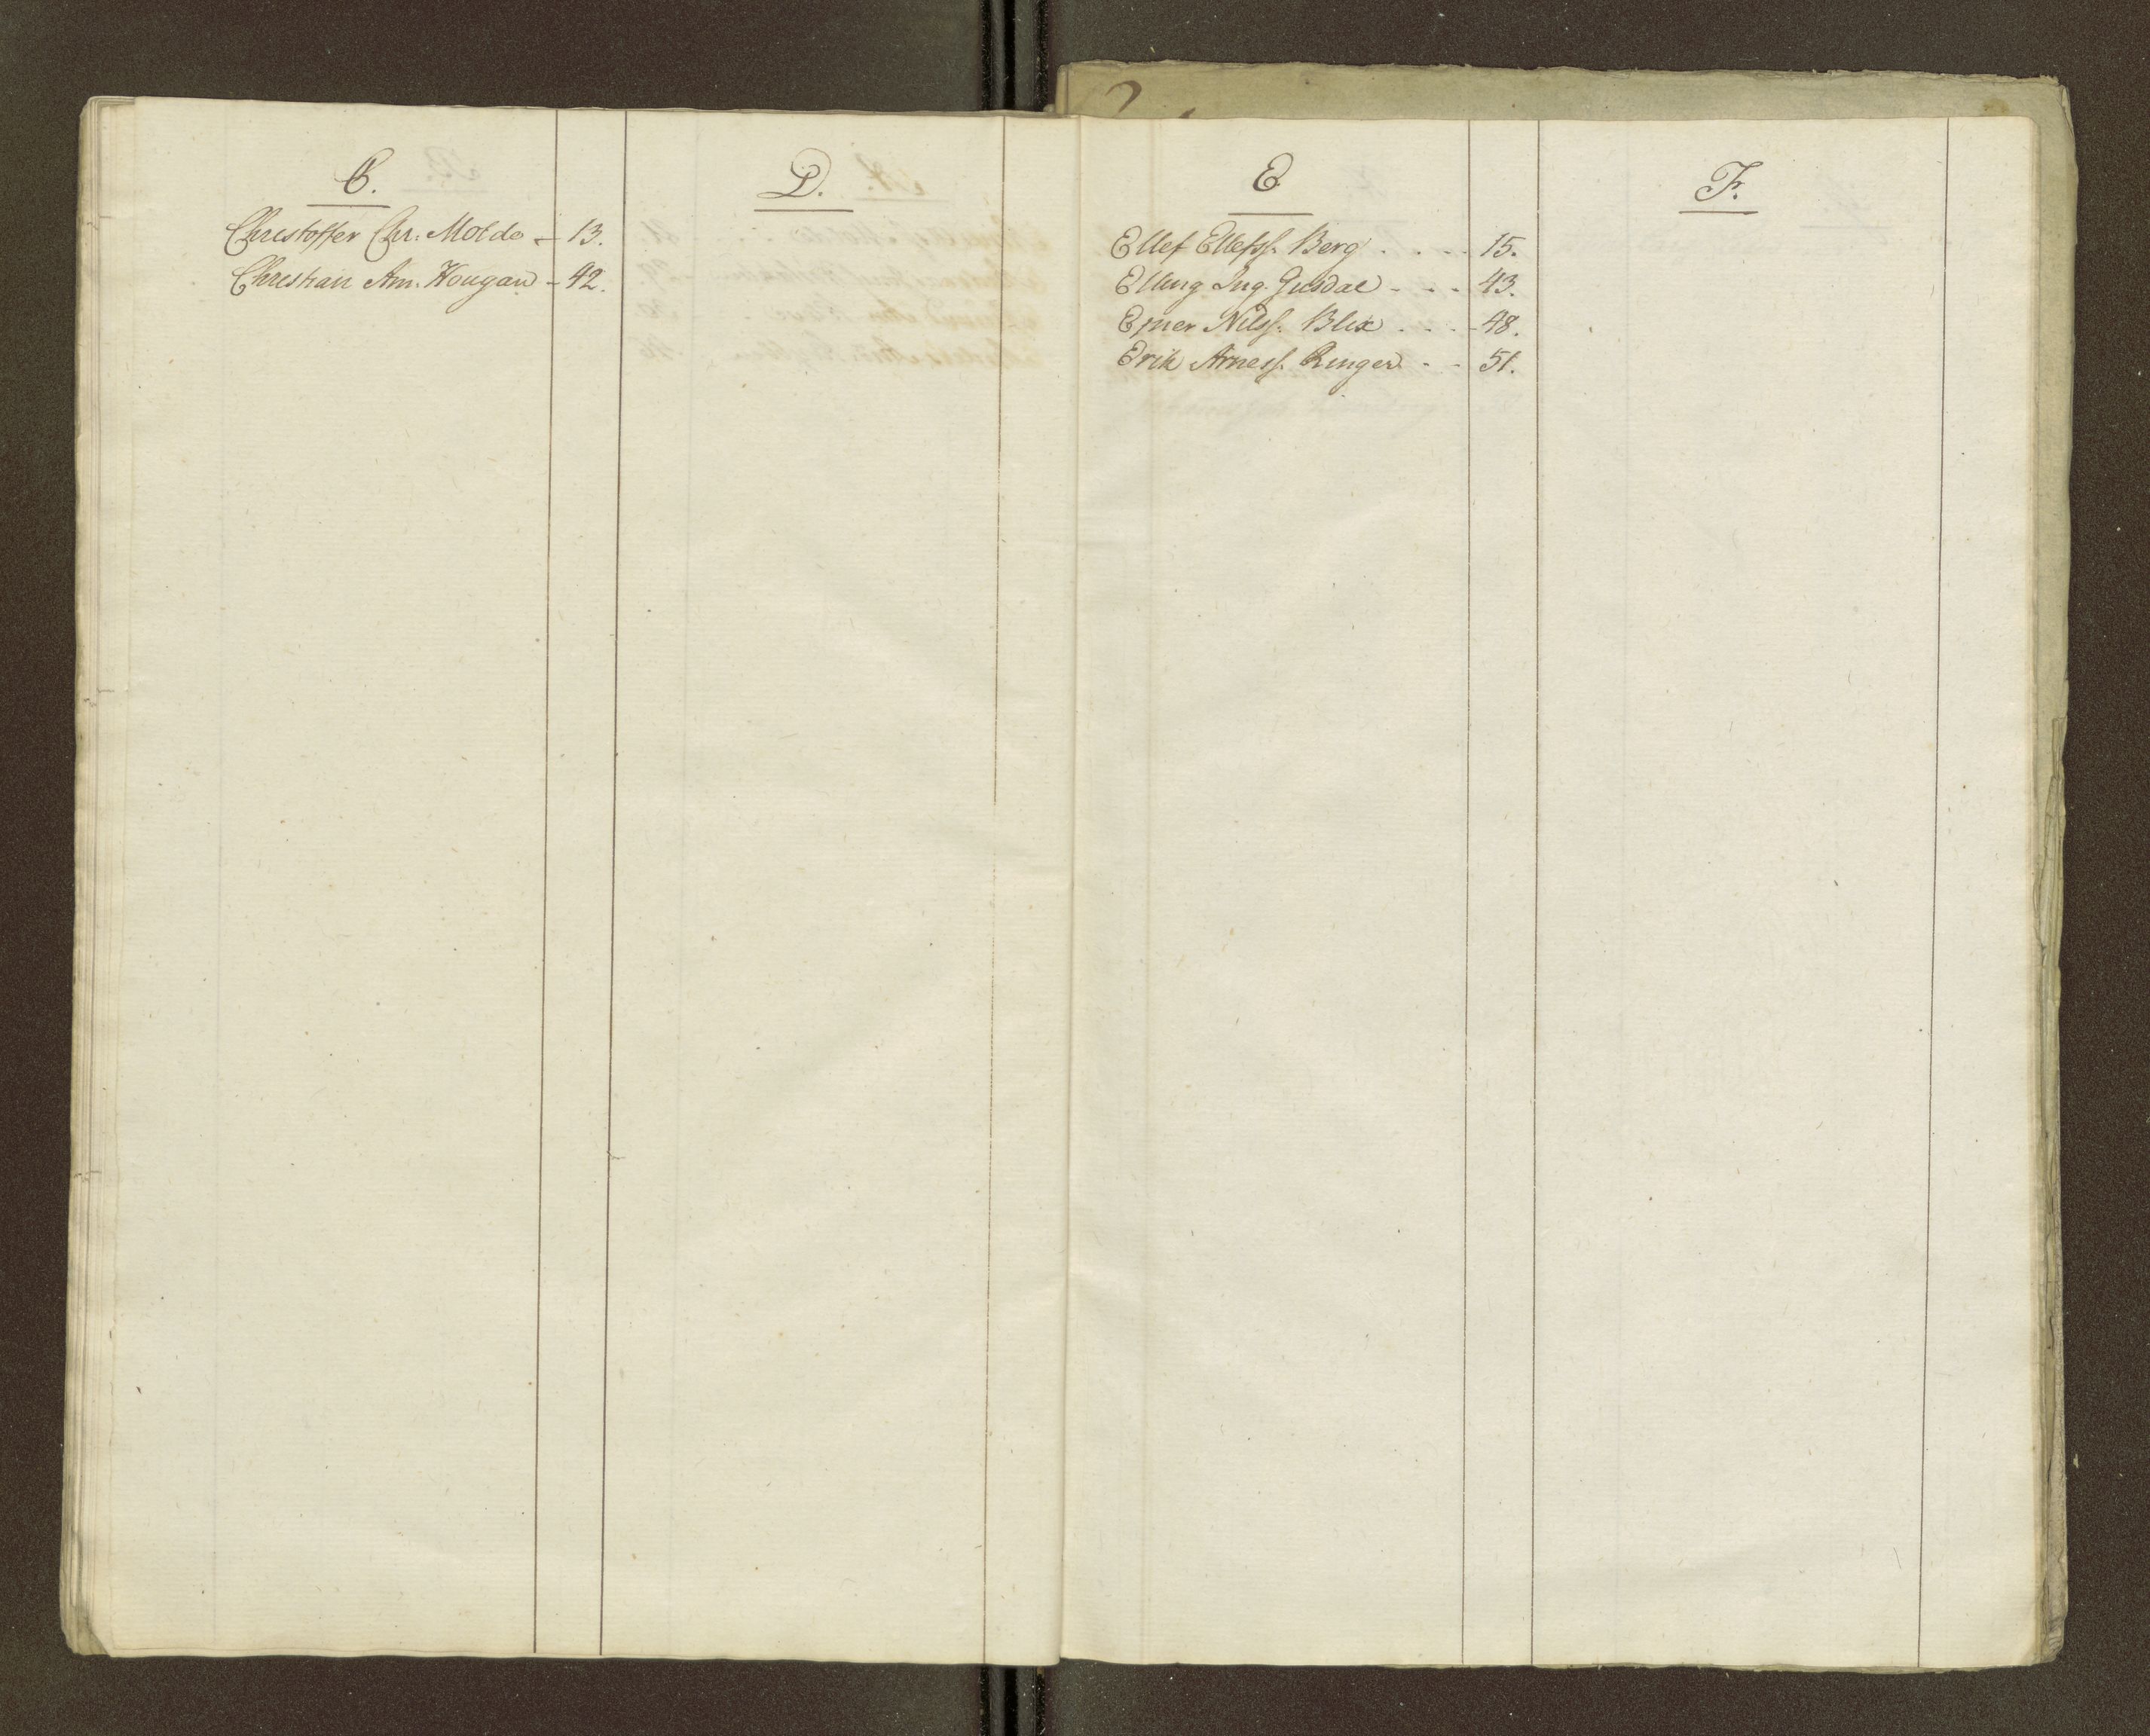 C.
Christoffer Chr: Molde - 13.
Christian Am. Hougan - 42.
D.
E
Ellef Ellefss. Berg . . . . 15.
Elling Ing. Gusdal - - - 43.
Ejner Nilss. Blix . . . 48.
Erik Arness. Ringer - - 51.
F.